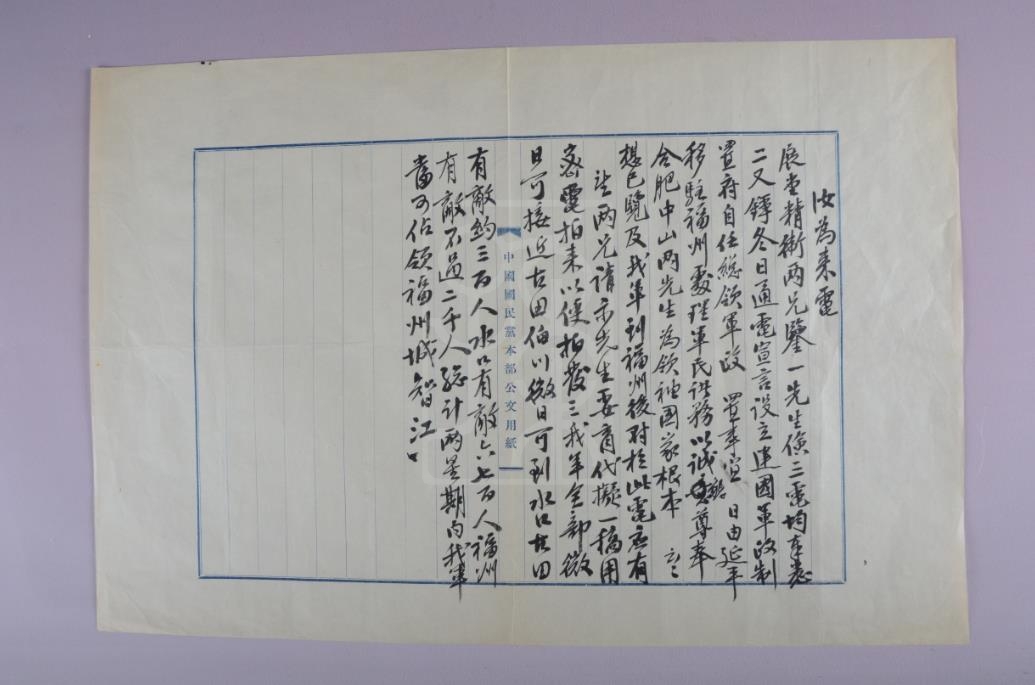 汝為来電
展堂精衛两兄鑒一先生儉三電均奉悉
二又錚冬日通電宣言設立建國軍政制
置府自任總領軍政 置事宜 日由延平
移駐福州處理軍民諸務以誠 尊奉
合肥中山两先生為領袖國家根本 云云
想已覽及我軍到福州後对於此電應有
 两兄請示先生要育代擬一稿用
密電拍来以便拍發三我軍全部微
日可接近古田伯川微日可到水口古田
有敵約三百人水口有敵六七百人福州
有敵不過二千人總計两星期内我軍
當可佔領福州城智江
中國國民黨本部公文用紙